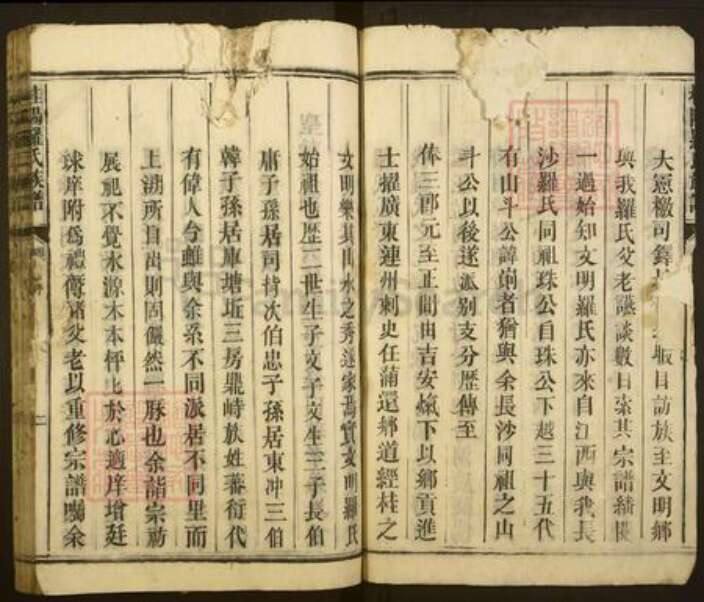 大憲檄司鐸
取目訪族至文明鄉
與我羅氏父老讌談數日索其宗譜繙閱
一過始知文明羅氏亦來自江西與我長
沙羅氏同祖珠公自珠公下越三十五代
有山斗公諱者猶與余長沙同祖之山
斗公以後遂派别支分歷傳至
俸三郡元至正間由吉安城下以鄉貢進
士擢廣東連州刺史任蒲還鄉道經桂之
文明樂其山水之秀遂家焉實文明羅氏
始祖也歷二世生子文子文生三子長伯
庸子孫居司背次伯忠子孫居東冲三伯
韓子孫居庫塘坵三房鼎峙族姓蕃衍代
有偉人兮雖與余系不同派居不同里而
上溯所自出則固儼然一脉也余詣宗祠
展祀不覺水源木本怦怦於心適庠增廷
球庠附為禮衛諸父老以重修宗譜囑余
桂陽羅氏族譜